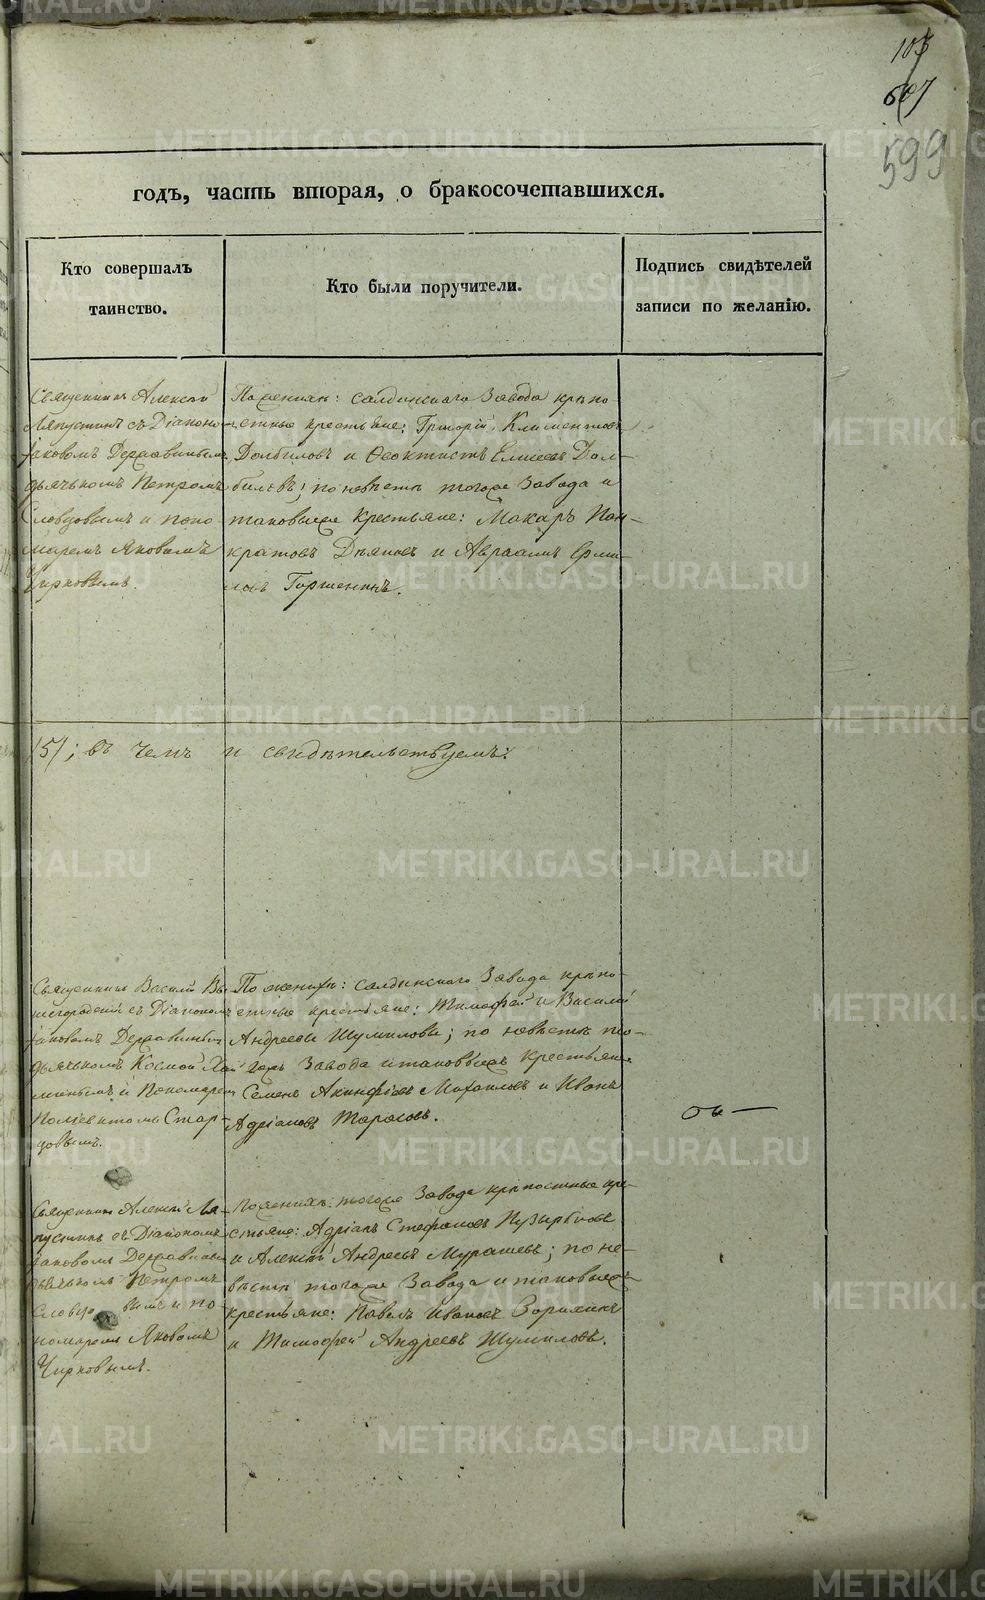 103
607
599
годъ, часть вторая, о бракосочетавшихся.
Кто совершалъ
таинство.
Кто были поручители.
Подпись свидѣтелей
записи по желанію.
Священникъ Алексій
Ляпустинъ съ Діаконо-
Іаковомъ Державинымъ
дьячькомъ Петромъ
Словцовымъ и поно-
маремъ Яковомъ
Чирковымъ.
По женихѣ: салдинскаго Завода крѣпо-
стные крестьяне: Григорій Климентовъ
Долбиловъ и Ѳеоктистъ Елисеевъ Дол-
биловъ; по невѣстѣ тогоже Завода и
таковыеже Крестьяне: Макаръ Пан-
кратовъ Дьяковъ и Авраамъ Ерми-
ловъ Горшенинъ.
151; въ чемъ и свидѣтельствуемъ:
Священникъ Василій Вы-
шегородскій съ Діакономъ
Іаковомъ Державинымъ
дьячькомъ Космою
и Пономаремъ
Полiевктомъ Стар-
цовымъ.
По женихѣ: салдинскаго Завода крѣпо-
стные крестьяне: Тимофей и Василій
Андреевы Шумиловы; по невѣстѣ то-
гожъ Завода и таковыеже крестьяне
Семенъ Акинфіевъ Михайловъ и Иванъ
Адріановъ Тарасовъ.
Священникъ Алексій Ля-
пустинъ съ Діакономъ
Іаковомъ Державинымъ
дьячькомъ Петромъ
Словцовымъ и по-
номаремъ Яковомъ
Чирковымъ.
По женихѣ: тогоже Завода крѣпостные кре-
стьяне: Адріанъ Стефановъ Пузыревъ
и Алексѣй Андреевъ Мурашевъ; по не-
вѣстѣ тогоже Завода и таковыежъ
крестьяне: Павелъ Ивановъ Зорихинъ
и Тимофей Андреевъ Шумиловъ.